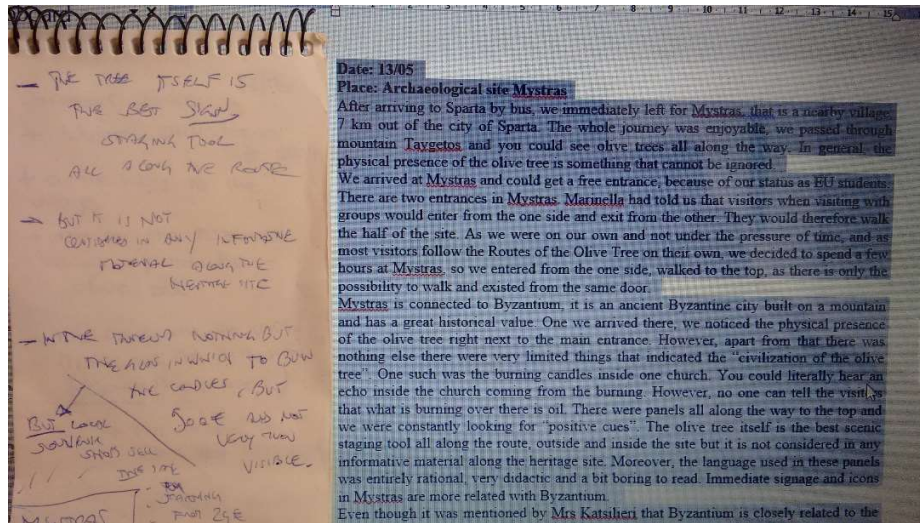 - THE TREE ITSELF IS
THE BEST SIGN
STAGING TOOL
ALL ALONG THE ROUTE
- BUT IT IS NOT
CONSIDERED IN ANY INFORMATIVE
MATERIAL ALONG THE
HERITAGE SITE
- IN THE NOTHING BUT
THE IN WHICH TO BURN
THE CANDLES, BUT
BUT LOOK 500€ DID NOT
VISIBLE.
SHOPS SELL
8 9 10 11 12 13 14 15
Date: 13/05
Place: Archaeological site Mystras
After arriving to Sparta by bus, we immediately left for Mystras, that is a nearby village
7 km out of the city of Sparta. The whole journey was enjoyable, we passed through
mountain Taygetos and you could see olive trees all along the way. In general, the
physical presence of the olive tree is something that cannot be ignored.
We arrived at Mystras and could get a free entrance, because of our status as EU students.
There are two entrances in Mystras. Marinella had told us that visitors when visiting with
groups would enter from the one side and exit from the other. They would therefore walk
the half of the site. As we were on our own and not under the pressure of time, and as
most visitors follow the Routes of the Olive Tree on their own, we decided to spend a few
hours at Mystras, so we entered from the one side, walked to the top, as there is only the
possibility to walk and existed from the same door.
Mystras is connected to Byzantium, it is an ancient Byzantine city built on a mountain
and has a great historical value. One we arrived there, we noticed the physical presence
of the olive tree right next to the main entrance. However, apart from that there was
nothing else there were very limited things that indicated the "civilization of the olive
tree". One such was the burning candles inside one church. You could literally hear an
echo inside the church coming from the burning. However, no one can tell the visitors
that what is burning over there is oil. There were panels all along the way to the top and
we were constantly looking for "positive cues". The olive tree itself is the best scenic
staging tool all along the route, outside and inside the site but it is not considered in any
informative material along the heritage site. Moreover, the language used in these panels
was entirely rational, very didactic and a bit boring to read. Immediate signage and icons
in Mystras are more related with Byzantium.
Even though it was mentioned by Mrs Katsilieri that Byzantium is closely related to the